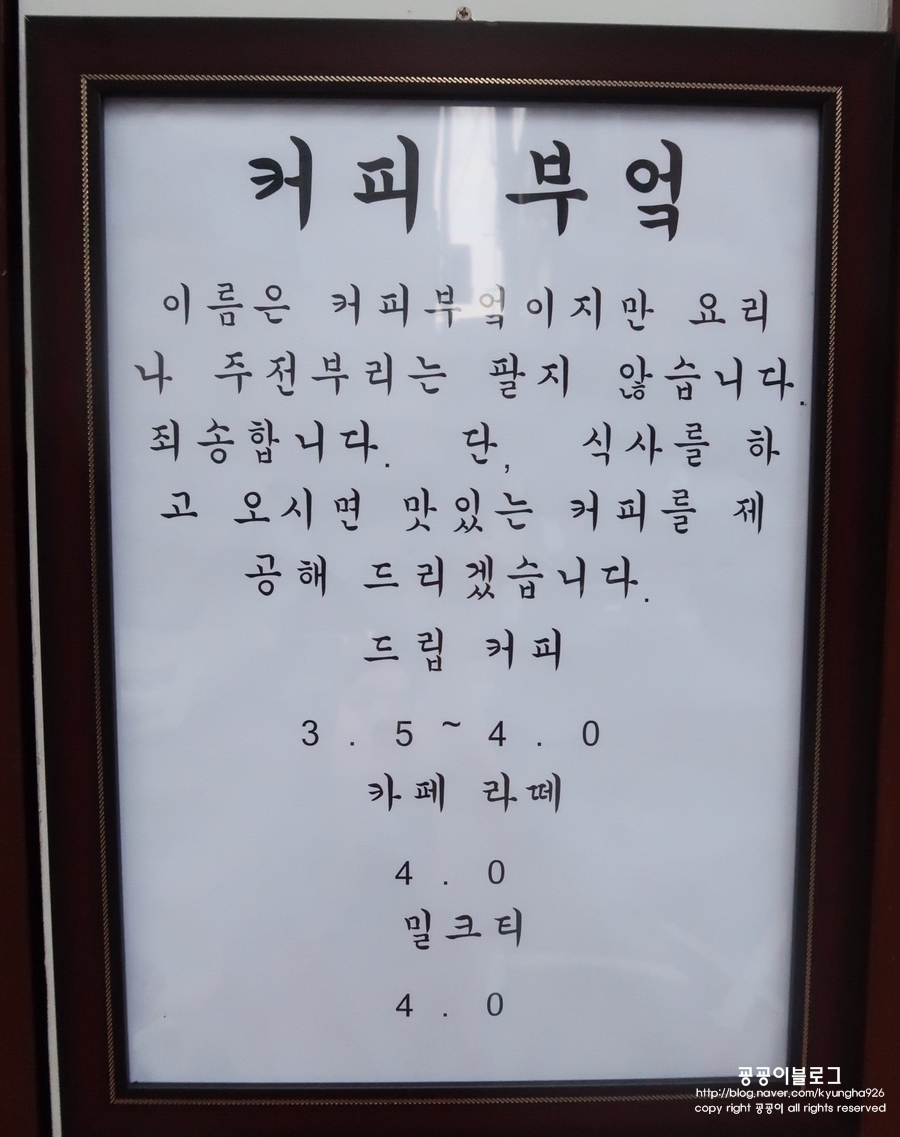 커피 부엌
이름은 커피부엌이지만 요리
나 주전부리는 팔지 않습니다.
죄송합니다. 단, 식사를 하
고 오시면 맛있는 커피를 제
공해 드리겠습니다.
드립 커피
3 . 5 ~ 4 . 0
카페 라떼
4 . 0
밀크티
4 . 0
꿍꿍이블로그
http://blog.naver.com/kyungha926
copy right 꿍꿍이 all rights reserved